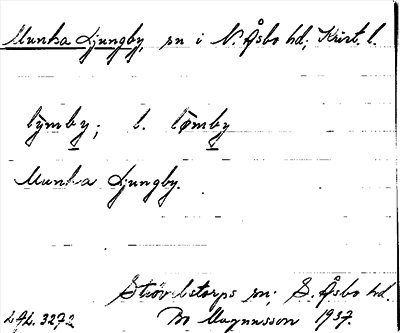 Munka Ljungby, sn i N. Åsbo hd; Krist. l.
lỳmby; l. lömby
Munka Ljungby.
Strövelstorps sn; S. Åsbo hd.
LAL. 3272 Bo Magnusson 1937.